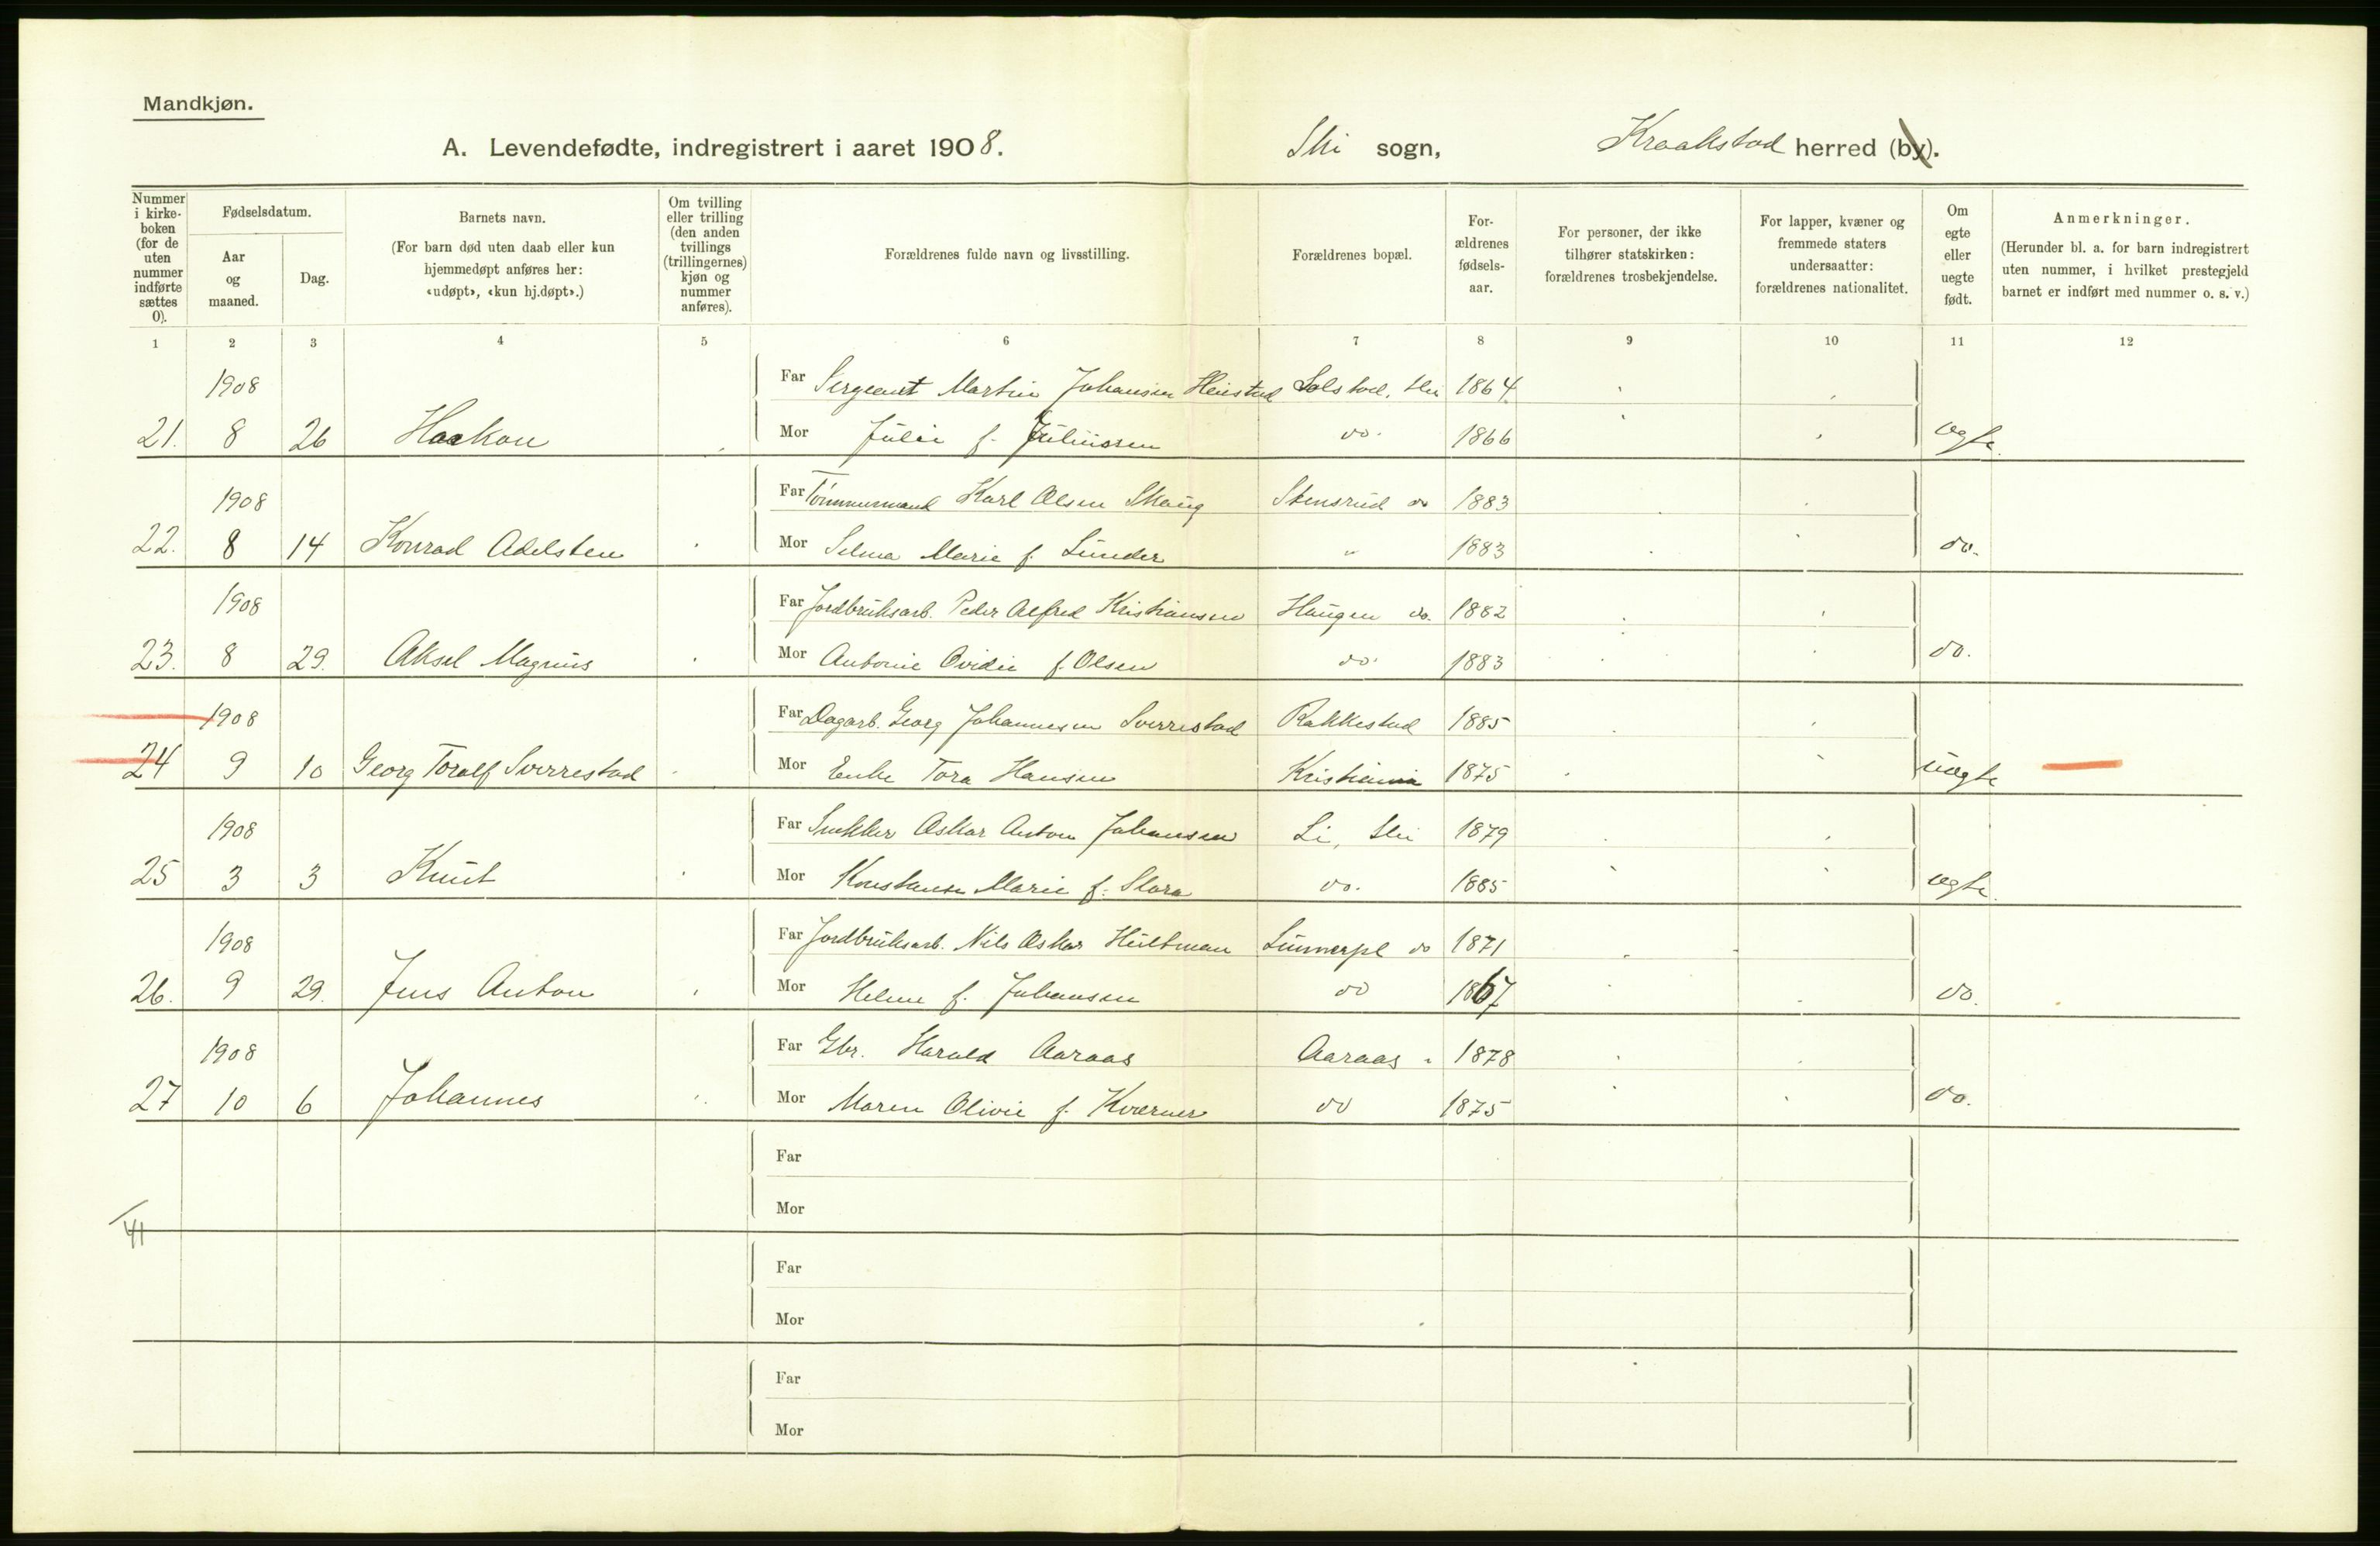 Mandkjøn.
A. Levendefødte, indregistrert i aaret 1908.
Ski sogn, Kraakstad herred (by).
Nummer i kirke-boken (for de uten nummer indførte sættes 0).
Fødselsdatum.
Aar og maaned.
Dag.
Barnets navn.
(For barn død uten daab eller kun hjemmedøpt anføres her: «udøpt», «kun hj.døpt».)
Om tvilling eller trilling (den anden tvillings (trillingernes) kjøn og nummer anføres).
Forældrenes fulde navn og livsstilling.
Forældrenes bopæl.
For-ældrenes fødsels-aar.
For personer, der ikke tilhører statskirken: forældrenes trosbekjendelse.
For lapper, kvæner og fremmede staters undersaatter: forældrenes nationalitet.
Om egte eller uegte født.
Anmerkninger.
(Herunder bl. a. for barn indregistrert uten nummer, i hvilket prestegjeld barnet er indført med nummer o. s. v.)
1 2 3 4 5 6 7 8 9 10 11 12
1908 Far Sergeant Martin Johansen Heistad Solstad, Ski 1864
21. 8 26 Haakon Mor Julie f. Juliussen do. 1866 egte
1908 Far Tömmermand Karl Olsen Skaug Stensrud do 1883
22. 8 14 Konrad Adelsten Mor Selma Marie f. Sunder " 1883 do.
1908 Far Jordbruksarb. Peder Alfred Kristiansen Haugen do. 1882
23. 8 29. Aksel Magnus Mor Antonie Ovidie f. Olsen do. 1883 do.
1908 Far Dagarb. Georg Johannesen Sverrestad Rakkestad 1885
24 9 10 Georg Toralf Sverrestad Mor Enke Tora Hansen Kristiania 1875 uegte
1908 Far Snekker Oskar Anton Johansen Li, Ski 1879
25 3 3 Knut Mor Konstanse Marie f. Slora do. 1885 egte
1908 Far Jordbruksarb. Nils Oskar Hultman Sunnerpl do 1871
26. 9 29. Jens Anton Mor Helene f. Johansen do 1867 do.
1908 Far Gbr. Harald Aaraas Aaraas " 1878
27 10 6 Johannes Mor Maren Olivie f. Kværner do 1875 do.
Far
Mor
Far
Mor
Far
Mor